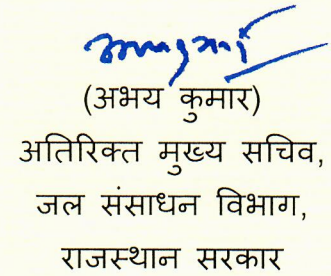 (अभय कुमार)
अतिरिक्त मुख्य सचिव,
जल संसाधन विभाग,
राजस्थान सरकार